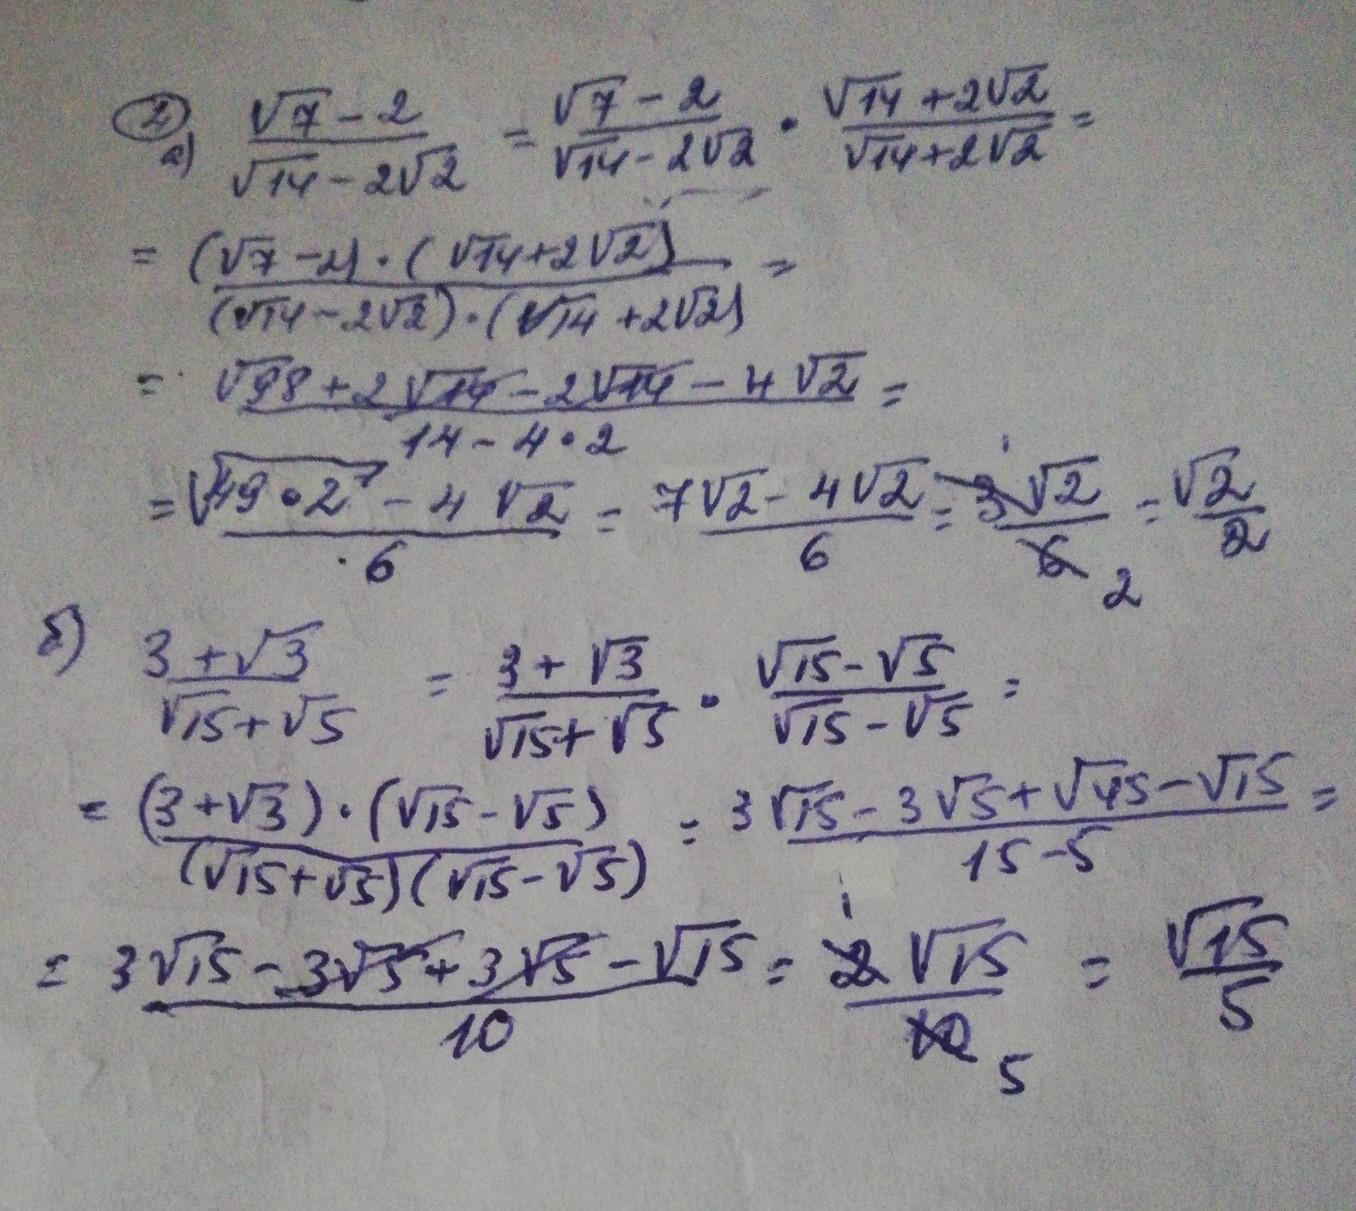 ② a) (√7 - 2)/(√14 - 2√2) = (√7 - 2)/(√14 - 2√2) • (√14 + 2√2)/(√14 + 2√2) =
= ((√7 - 2) • (√14 + 2√2))/((√14 - 2√2) • (√14 + 2√2)) =
= (√98 + 2√14 - 2√14 - 4√2)/(14 - 4 • 2) =
= (√(49 • 2) - 4√2)/6 = (7√2 - 4√2)/6 = (3 1 √2)/(6 2) = √2/2
б) (3 + √3)/(√15 + √5) = (3 + √3)/(√15 + √5) • (√15 - √5)/(√15 - √5) =
= ((3 + √3) • (√15 - √5))/((√15 + √5)(√15 - √5)) = (3√15 - 3√5 + √45 - √15)/(15 - 5) =
= (3√15 - 3√5 + 3√5 - √15)/10 = (2 1 √15)/(10 5) = √15/5